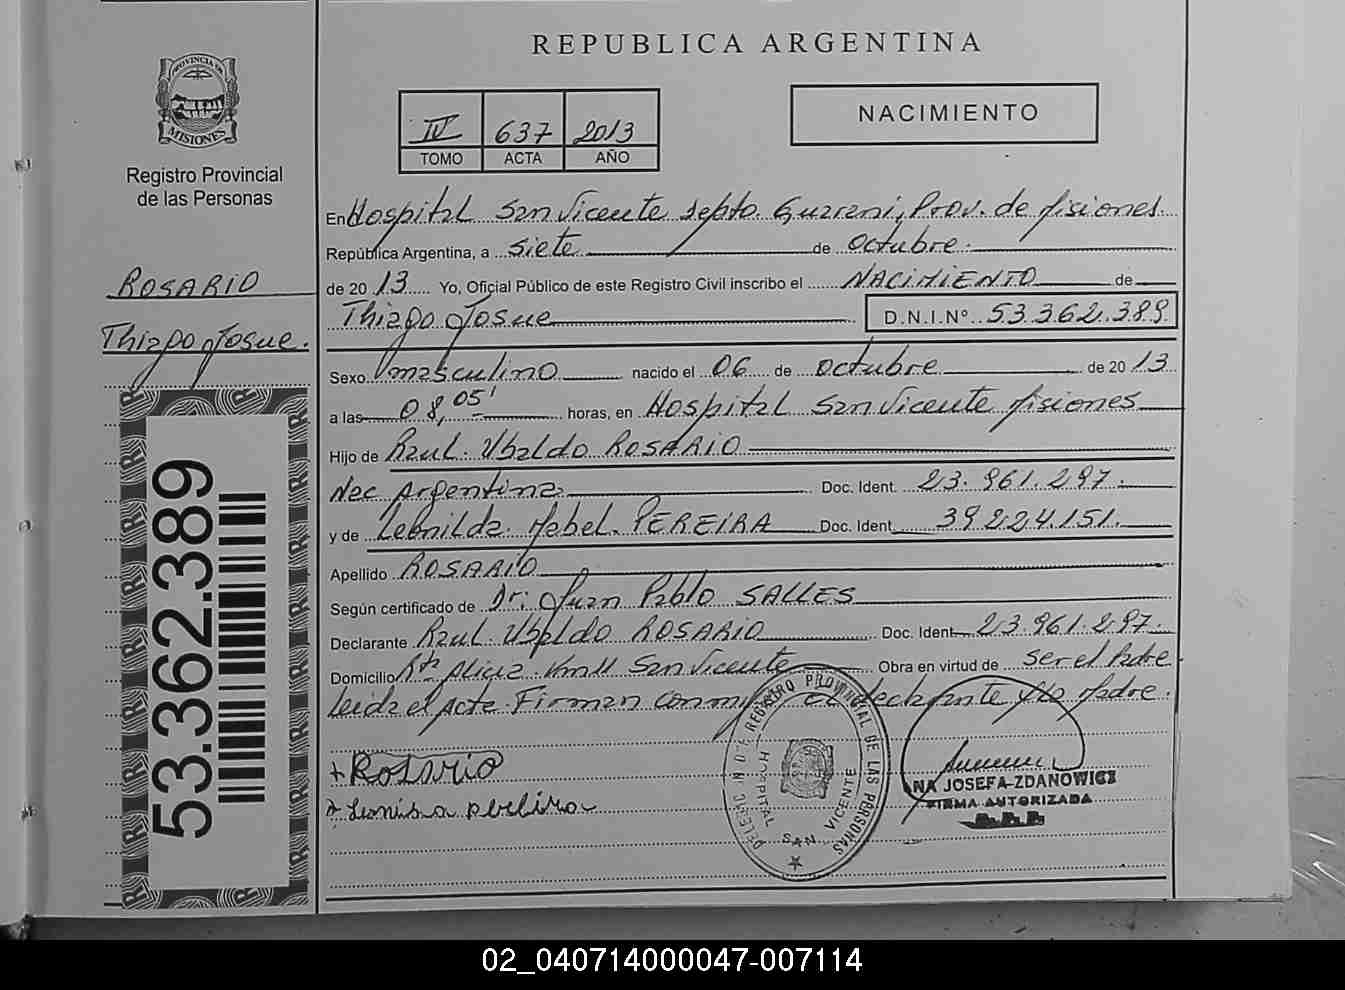 REPUBLICA ARGENTINA
PROVINCIA DE
MISIONES
Registro Provincial
de las Personas
IV 637 2013
TOMO ACTA AÑO
NACIMIENTO
ROSARIO
Thiago Josue.
53.362.389
En Hospital San Vicente Depto. Guarani, Prov. de Misiones.
República Argentina, a siete de octubre
de 2013 Yo, Oficial Público de este Registro Civil inscribo el NACIMIENTO de
Thiago Josue D.N.I.Nº 53.362.389
Sexo masculino nacido el 06 de octubre de 2013
a las 08,05' horas, en Hospital San Vicente Misiones
Hijo de Raul Ubaldo ROSARIO
Nac Argentina Doc. Ident. 23.961.297.
y de Leonilda Mabel PEREIRA Doc. Ident. 39224.151.
Apellido ROSARIO
Según certificado de Dr: Juan Pablo SALLES
Declarante Raul Ubaldo ROSARIO Doc. Ident. 23.961.297.
Domicilio Alicia San Vicente Obra en virtud de ser el Padre
Leida el Acta Firman el declarante y la Madre.
+ Rosario
DELEGACION DEL REGISTRO PROVINCIAL DE LAS PERSONAS
HOSPITAL SAN VICENTE
ANA JOSEFA ZDANOWICZ
FIRMA AUTORIZADA
02_040714000047-007114